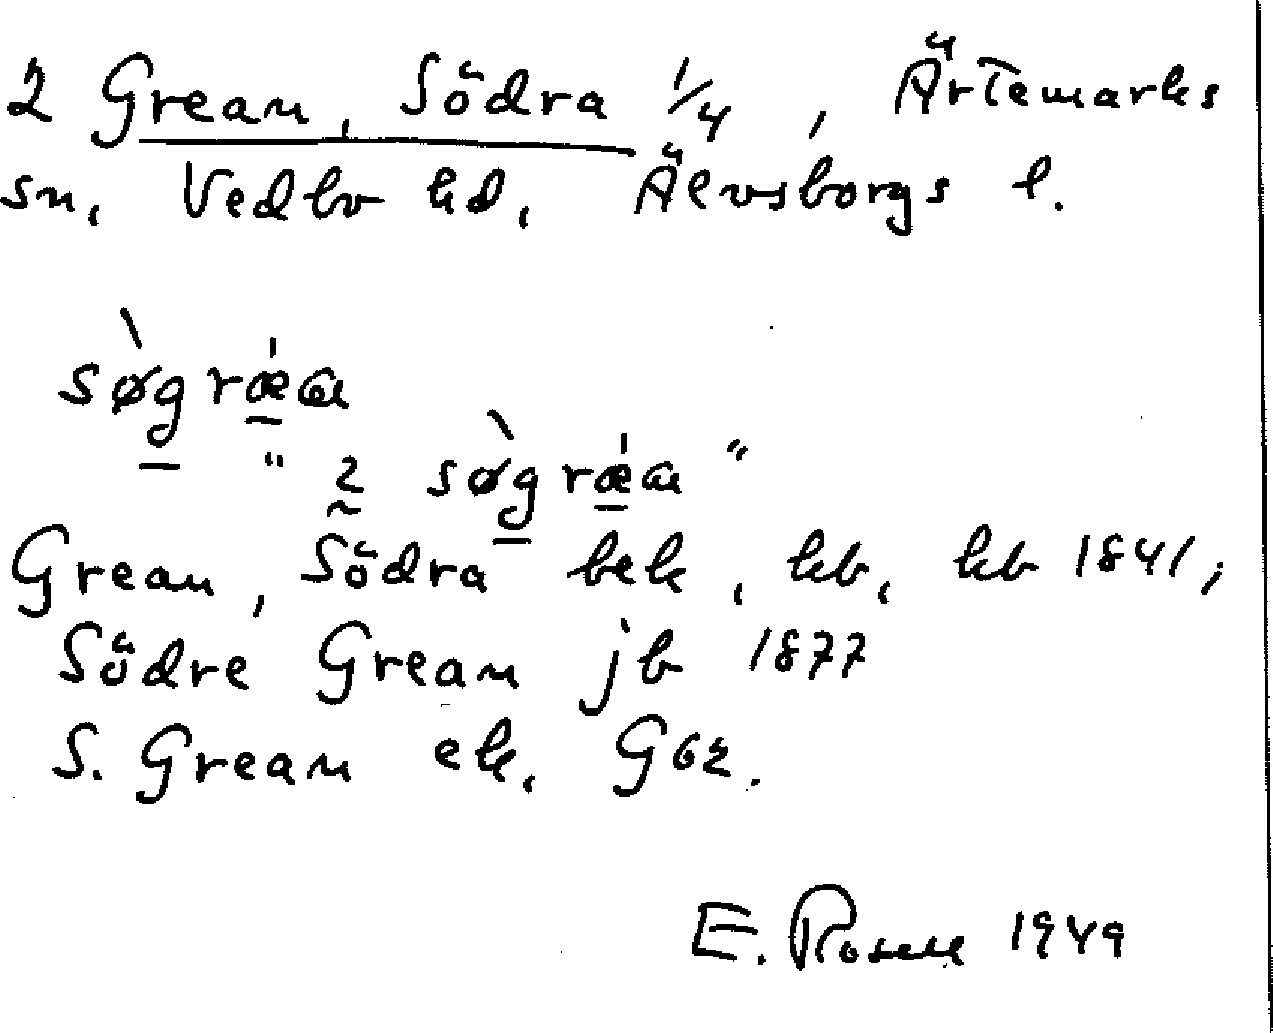 2 Grean, Södra 1/4, Ärtemarks
sn, Vedbo hd, Älvsborgs l.
sø̀græ̍a
" 2 sø̀græ̍a "
Grean, Södra bek, kb, kb 1841;
Södre Grean jb 1877
S. Grean ek, G62.
E. Rosell 1949